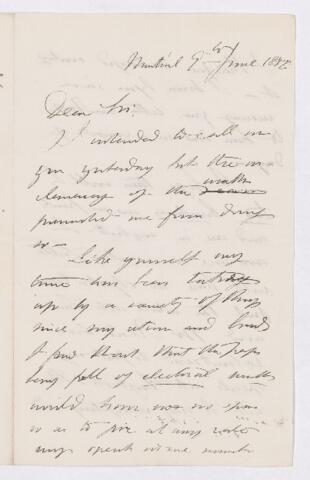 Montreal 9th June 1882
Dear Sir:
I intended to call on
you yesterday but the in
clemency of the weather
prevented me from doing
so —
Like yourself my
time has been taken
up by a variety of things
since my return and
I find that the paps
being full of electoral matter
would have no space
so as to give at any rate
my speech